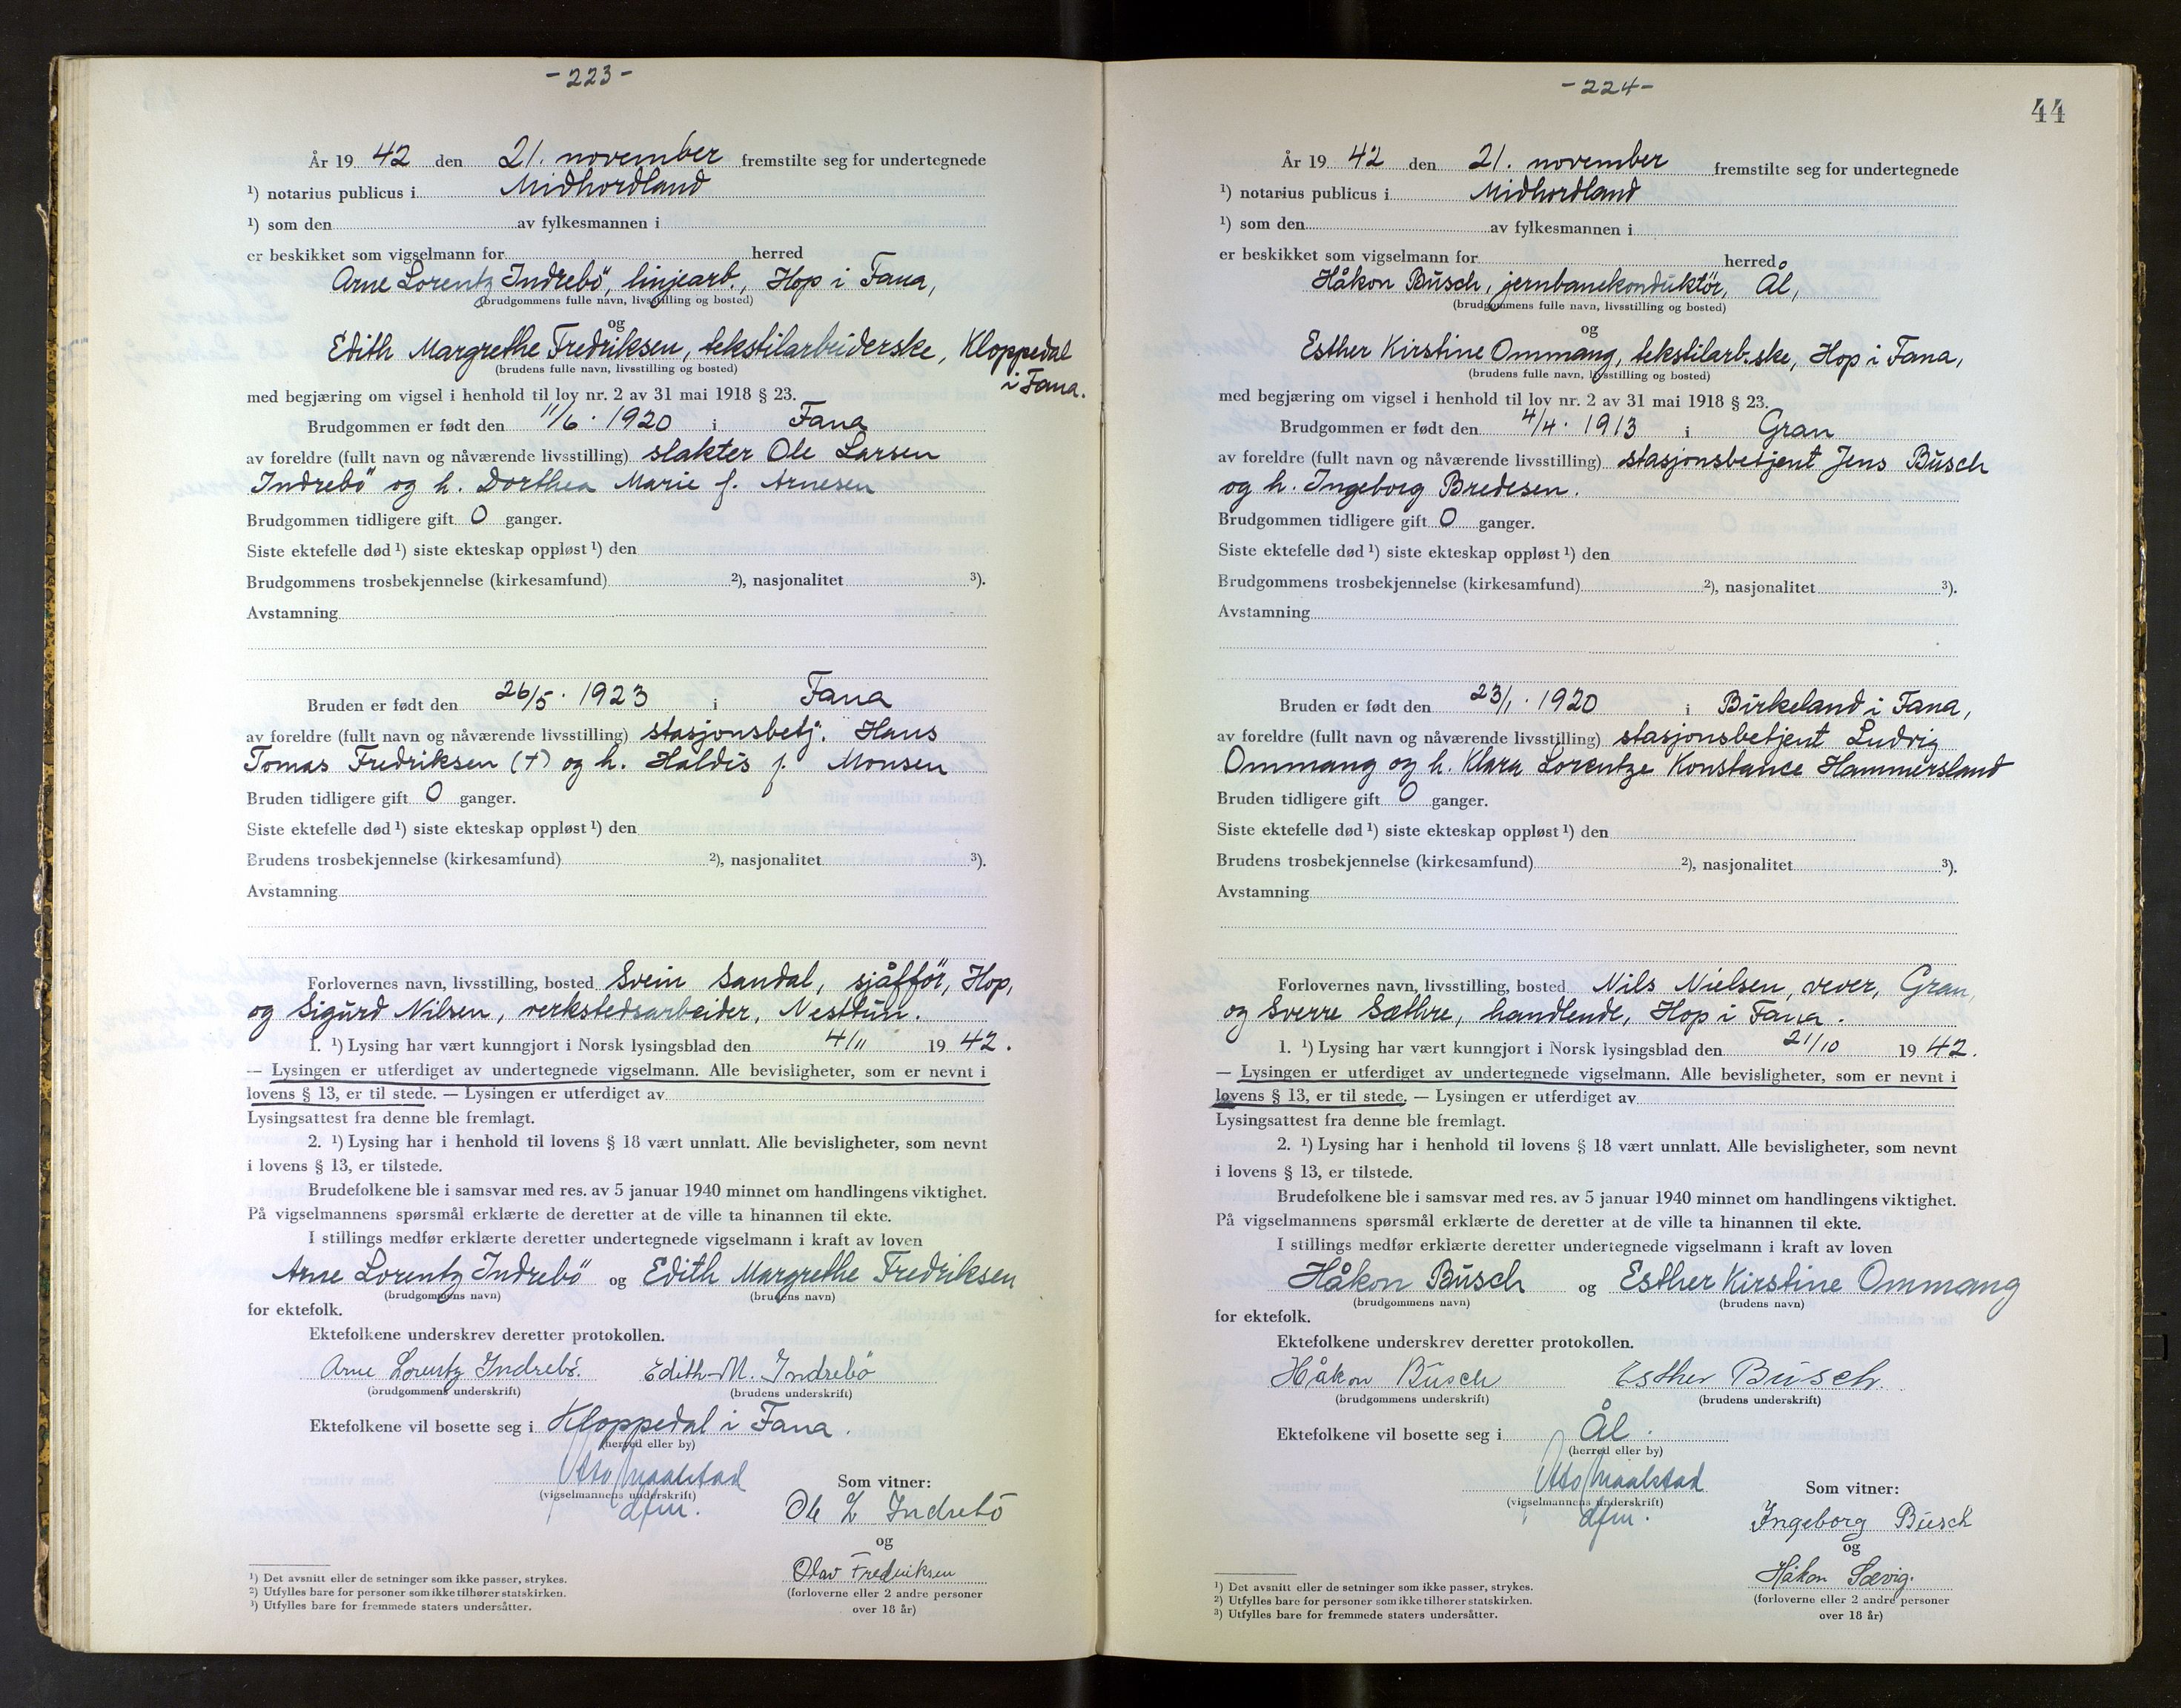 - 223 -
År 19 42 den 21. november fremstilte seg for undertegnede
¹) notarius publicus i Midhordland
¹) som den av fylkesmannen i
er beskikket som vigselmann for herred
Arne Lorentz Indrebö, linjearb., Hop i Fana,
(brudgommens fulle navn, livsstilling og bosted)
og
Edith Margrethe Fredriksen, tekstilarbeiderske, Kloppedal
i Fana.
(brudens fulle navn, livsstilling og bosted)
med begjæring om vigsel i henhold til lov nr. 2 av 31 mai 1918 § 23.
Brudgommen er født den 11/6. 1920 i Fana
av foreldre (fullt navn og nåværende livsstilling) slakter Ole Larsen
Indrebö og h. Dorthea Marie f. Arnesen
Brudgommen tidligere gift 0 ganger.
Siste ektefelle død ¹) siste ekteskap oppløst ¹) den
Brudgommens trosbekjennelse (kirkesamfund) ²), nasjonalitet ³).
Avstamning
Bruden er født den 26/5. 1923 i Fana
av foreldre (fullt navn og nåværende livsstilling) stasjonsbetj. Hans
Tomas Fredriksen (†) og h. Haldis f. Monsen
Bruden tidligere gift 0 ganger.
Siste ektefelle død ¹) siste ekteskap oppløst ¹) den
Brudens trosbekjennelse (kirkesamfund) ²), nasjonalitet ³).
Avstamning
Forlovernes navn, livsstilling, bosted Svein Sandal, sjåfför, Hop,
og Sigurd Nilsen, verkstedsarbeider, Nesttun.
1. ¹) Lysing har vært kunngjort i Norsk lysingsblad den 4/11 19 42.
— Lysingen er utferdiget av undertegnede vigselmann. Alle bevisligheter, som er nevnt i
lovens § 13, er til stede. — Lysingen er utferdiget av
Lysingsattest fra denne ble fremlagt.
2. ¹) Lysing har i henhold til lovens § 18 vært unnlatt. Alle bevisligheter, som nevnt
i lovens § 13, er tilstede.
Brudefolkene ble i samsvar med res. av 5 januar 1940 minnet om handlingens viktighet.
På vigselmannens spørsmål erklærte de deretter at de ville ta hinannen til ekte.
I stillings medfør erklærte deretter undertegnede vigselmann i kraft av loven
Arne Lorentz Indrebö og Edith Margrethe Fredriksen
(brudgommens navn) (brudens navn)
for ektefolk.
Ektefolkene underskrev deretter protokollen.
Arne Lorentz Indrebö. Edith M. Indrebö
(brudgommens underskrift) (brudens underskrift)
Ektefolkene vil bosette seg i Kloppedal i Fana.
(herred eller by)
Otto Maalstad
(vigselmannens underskrift)
dfm.
Som vitner:
Ole L Indrebö
og
Olav Fredriksen
(forloverne eller 2 andre personer
over 18 år)
¹) Det avsnitt eller de setninger som ikke passer, strykes.
²) Utfylles bare for personer som ikke tilhører statskirken.
³) Utfylles bare for fremmede staters undersåtter.
- 224 -
44
År 19 42 den 21. november fremstilte seg for undertegnede
¹) notarius publicus i Midhordland
¹) som den av fylkesmannen i
er beskikket som vigselmann for herred
Håkon Busch, jernbanekonduktör, Ål,
(brudgommens fulle navn, livsstilling og bosted)
og
Esther Kirstine Ommang, tekstilarb.ske, Hop i Fana,
(brudens fulle navn, livsstilling og bosted)
med begjæring om vigsel i henhold til lov nr. 2 av 31 mai 1918 § 23.
Brudgommen er født den 4/4. 1913 i Gran
av foreldre (fullt navn og nåværende livsstilling) stasjonsbetjent Jens Busch
og h. Ingeborg Bredesen.
Brudgommen tidligere gift 0 ganger.
Siste ektefelle død ¹) siste ekteskap oppløst ¹) den
Brudgommens trosbekjennelse (kirkesamfund) ²), nasjonalitet ³).
Avstamning
Bruden er født den 23/1. 1920 i Birkeland i Fana,
av foreldre (fullt navn og nåværende livsstilling) stasjonsbetjent Ludvig
Ommang og h. Klara Lorentze Konstance Hammersland
Bruden tidligere gift 0 ganger.
Siste ektefelle død ¹) siste ekteskap oppløst ¹) den
Brudens trosbekjennelse (kirkesamfund) ²), nasjonalitet ³).
Avstamning
Forlovernes navn, livsstilling, bosted Nils Nielsen, vever, Gran,
og Sverre Sæthre, handlende, Hop i Fana.
1. ¹) Lysing har vært kunngjort i Norsk lysingsblad den 21/10 19 42.
— Lysingen er utferdiget av undertegnede vigselmann. Alle bevisligheter, som er nevnt i
lovens § 13, er til stede. — Lysingen er utferdiget av
Lysingsattest fra denne ble fremlagt.
2. ¹) Lysing har i henhold til lovens § 18 vært unnlatt. Alle bevisligheter, som nevnt
i lovens § 13, er tilstede.
Brudefolkene ble i samsvar med res. av 5 januar 1940 minnet om handlingens viktighet.
På vigselmannens spørsmål erklærte de deretter at de ville ta hinannen til ekte.
I stillings medfør erklærte deretter undertegnede vigselmann i kraft av loven
Håkon Busch og Esther Kirstine Ommang
(brudgommens navn) (brudens navn)
for ektefolk.
Ektefolkene underskrev deretter protokollen.
Håkon Busch Esther Busch.
(brudgommens underskrift) (brudens underskrift)
Ektefolkene vil bosette seg i Ål.
(herred eller by)
Otto Maalstad
(vigselmannens underskrift)
dfm.
Som vitner:
Ingeborg Busch
og
Håkon Sævig.
(forloverne eller 2 andre personer
over 18 år)
¹) Det avsnitt eller de setninger som ikke passer, strykes.
²) Utfylles bare for personer som ikke tilhører statskirken.
³) Utfylles bare for fremmede staters undersåtter.